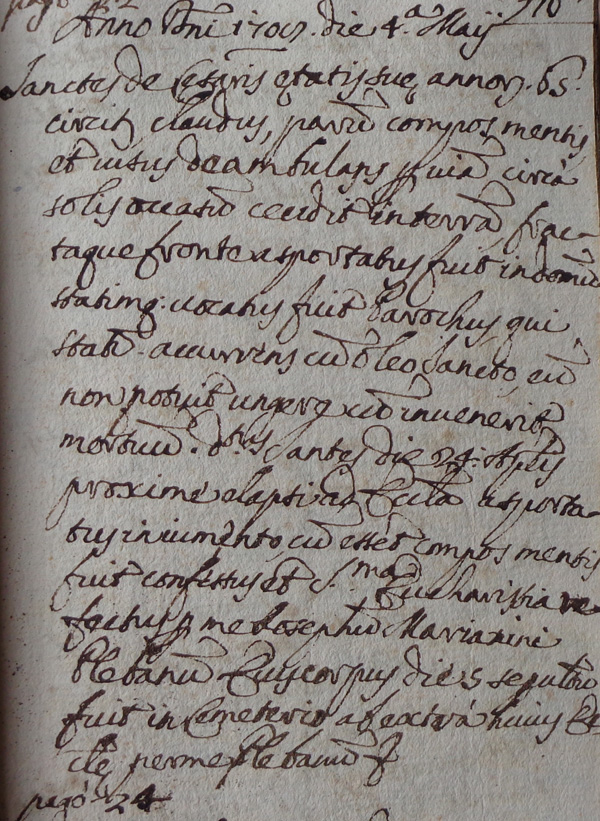 pagò 2
Anno Dni 1709. die 4.a Maij
Sanctes de Cesaris ętatis suę annorz. 65.
circitz claudus, parũ compos mentis
et visus deambulans p viã circa
solis occasũ cecidit in terrã frac-
taque fronte asportatus fuit in domũ
statimqz vocatus fuit Parochus qui
statĩ accurrens cũ Oleo Sancto, eũ
non potuit ungere cũ invenerit
mortuũ. Dtus Santes die 24. Aplis
proximè elapsi ad Eccłã asporta-
tus in iumento cũ esset compos mentis
fuit confessus et S.ma Eucharistia re-
fectus p me Iosephũ Marianini
Plebanũ Eius corpus die 5 sepultũ
fuit in Cemeterio ab extra huius Ec-
clę per me Plebanũ
pagò 24